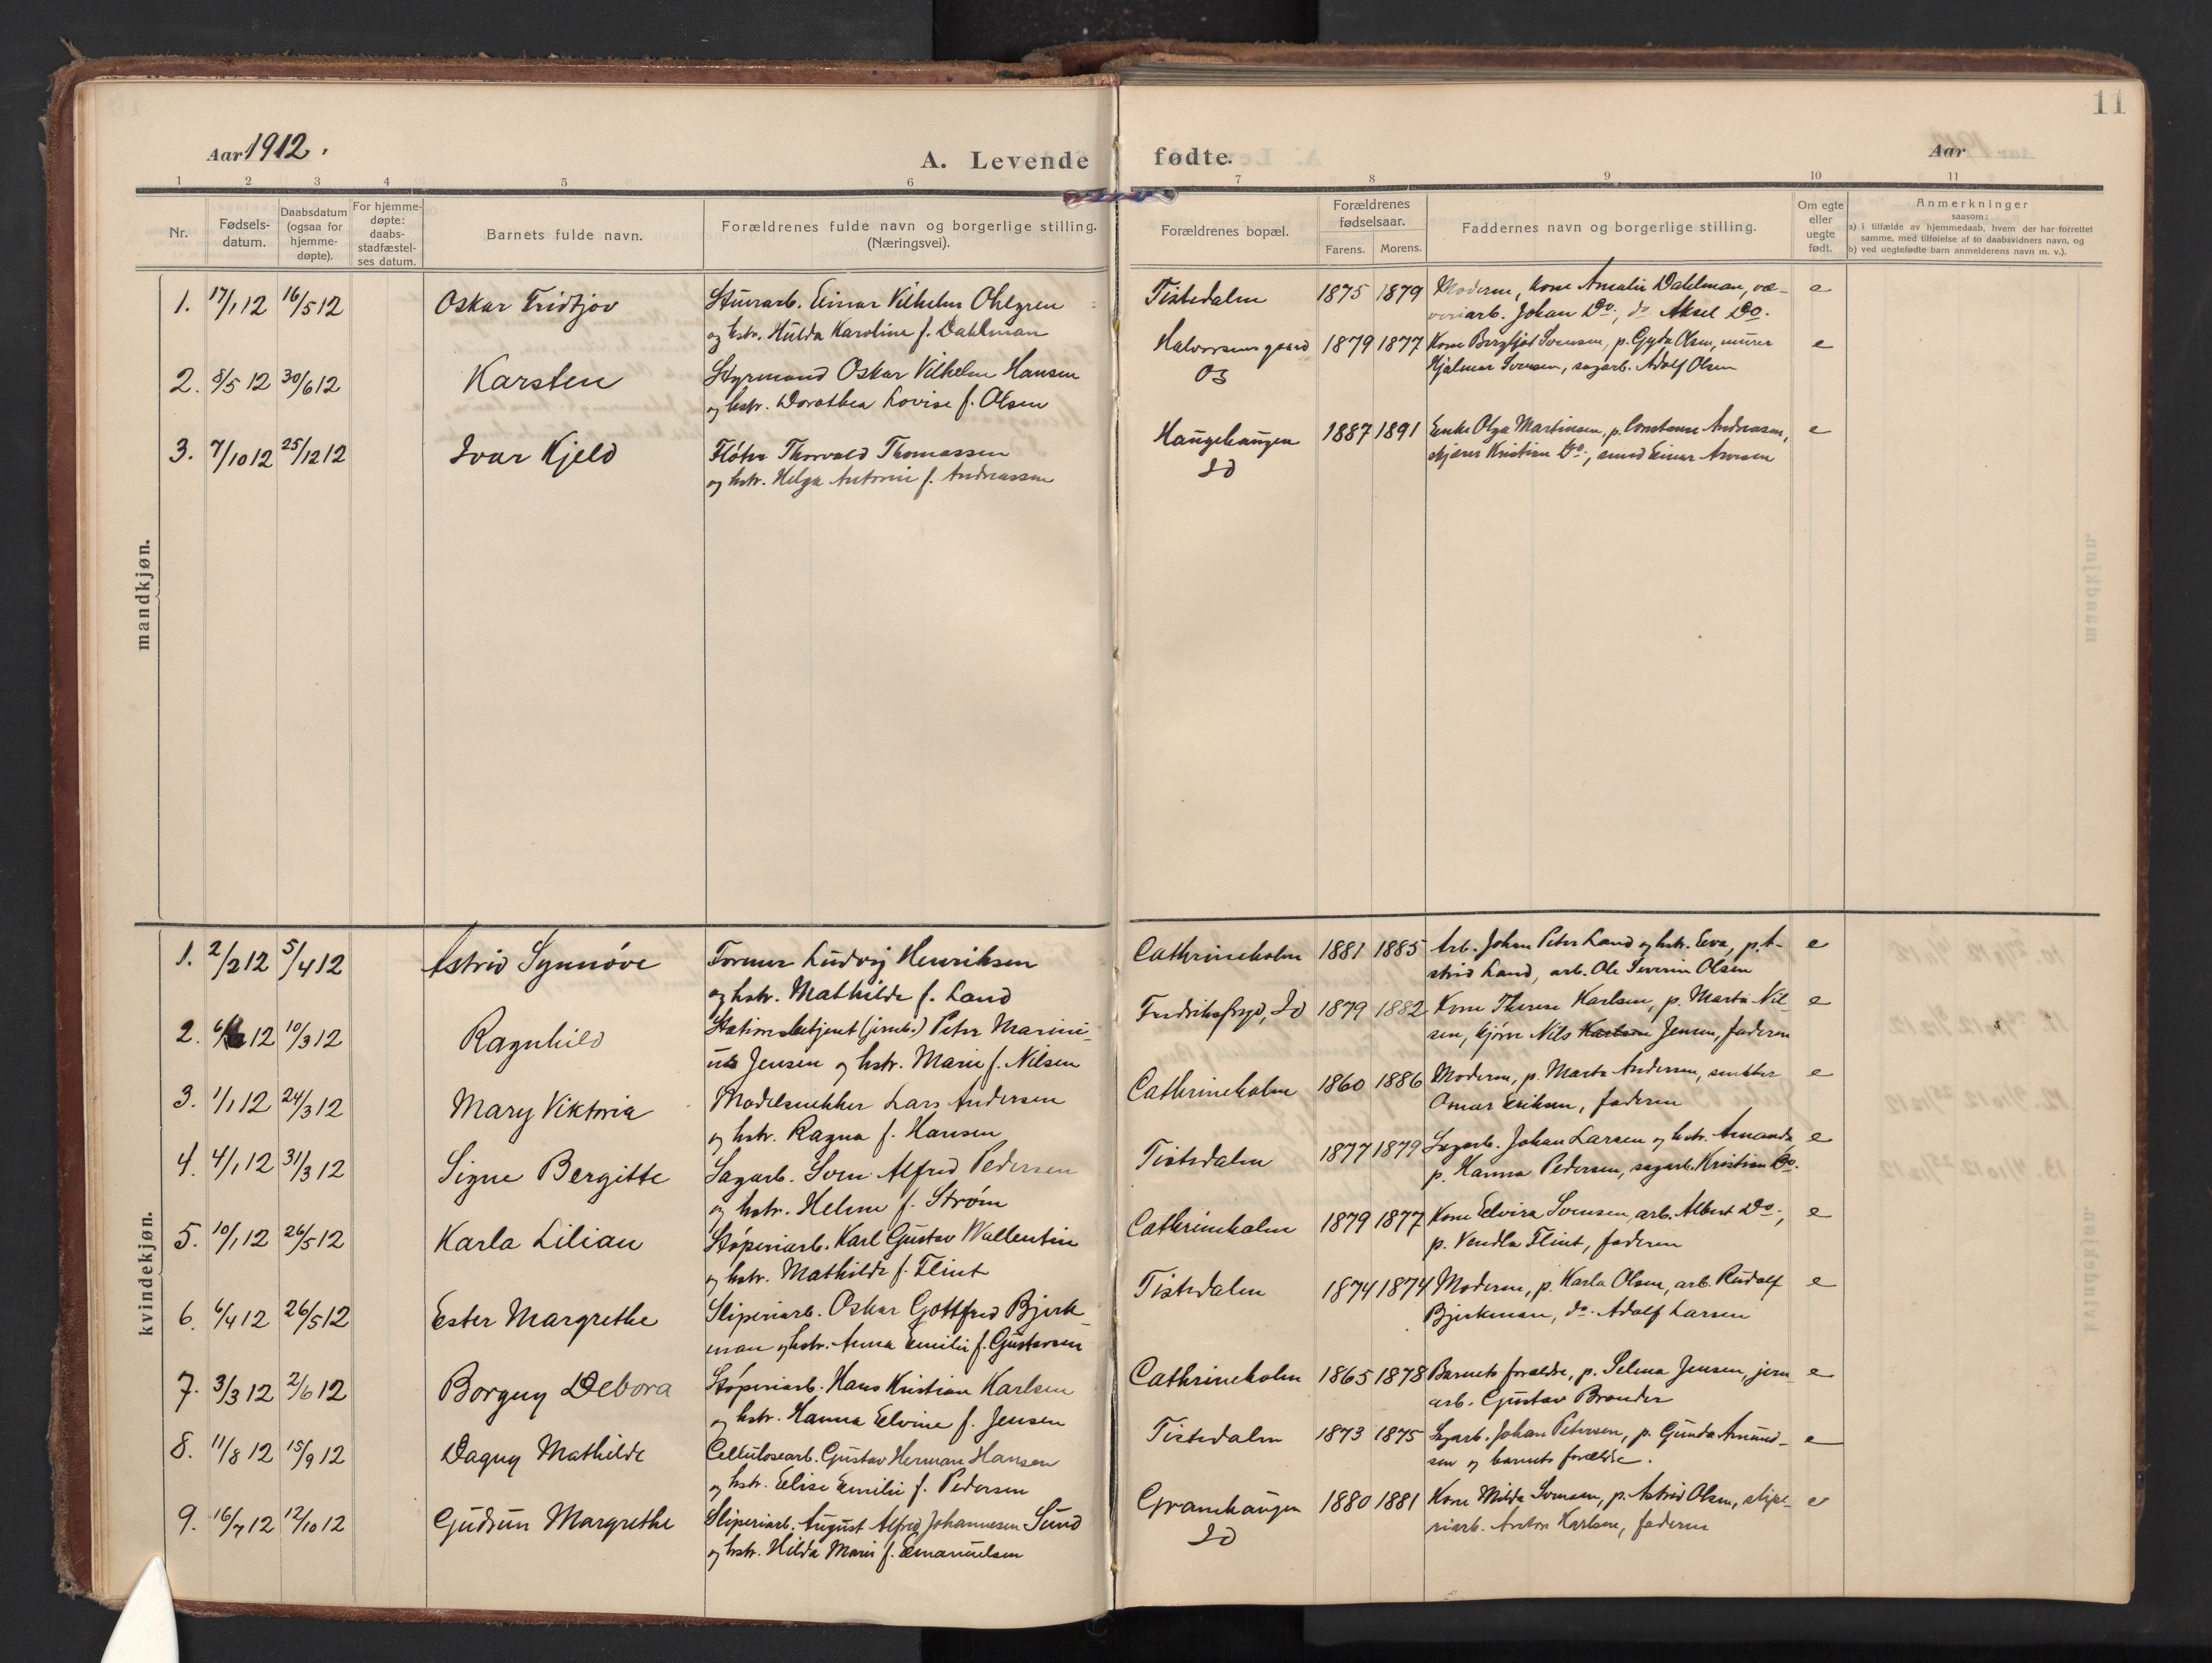 11
Aar 1912.
A. Levende fødte.
Aar
1 2 3 4 5 6 7 8 9 10 11
Nr.
Fødsels-
datum.
Daabsdatum
(ogsaa for
hjemme-
døpte).
For hjemme-
døpte:
daabs-
stadfæstel-
ses datum.
Barnets fulde navn.
Forældrenes fulde navn og borgerlige stilling.
(Næringsvei).
Forældrenes bopæl.
Forældrenes
fødselsaar.
Farens. Morens.
Faddernes navn og borgerlige stilling.
Om egte
eller
uegte
født.
Anmerkninger
saasom:
a) i tilfælde av hjemmedaab, hvem der har forrettet
samme, med tilføielse af to daabsvidners navn, og
b) ved uegtefødte barn anmelderens navn m. v.).
mandkjøn.
1. 17/1 12 16/5 12 Oskar Fridtjov Stuerarb. Einar Vilhelm Ohlgren Tistedalen 1875 1879 Moderen, kone Amalie Dahlman, væ- e
og hstr. Hulda Karoline f. Dahlman veriarb. Johan Do, do Aksel Do.
2. 8/5 12 30/6 12 Karsten Styrmand Oskar Vilhelm Hansen Halvorsensgaard 1879 1877 Kone Bergljot Svensen, p. Gyda Olsen, murer e
og hstr. Dorothea Lovise f. Olsen Os Hjalmar Svensen, sagarb. Adolf Olsen
3. 7/10 12 25/12 12 Ivar Kjeld Fløter Thorvald Thomassen Haugehaugen 1887 1891 Enke Olga Martinsen, p. Constance Andreasen, e
og hstr. Helga Antonie f. Andreassen Id Kristian Do, smed Einar
kvindekjøn.
1. 2/2 12 5/4 12 Astrid Synnøve Former Ludvig Henriksen Cathrineholm 1881 1885 Arb. Johan Peter Land og hstr. Eva, p. A- e
og hstr. Mathilde f. Land strid Land, arb. Ole Severin Olsen
2. 6/ 12 10/3 12 Ragnhild Stationsbetjent (jernb.) Peter Marini- Fredriksfryd, Id 1879 1882 Kone Therese Karlsen, p. Marta Nil- e
us Jensen og hstr. Marie f. Nilsen sen, kjører Nils Karlsen Jensen, faderen
3. 1/1 12 24/3 12 Mary Viktoria Modelsnekker Lars Andersen Cathrineholm 1860 1886 Moderen, p. Marta Andersen, snekker e
og hstr. Ragna f. Hansen Omar Eriksen, faderen
4. 4/1 12 31/3 12 Signe Bergitte Sagarb. Sven Alfred Pedersen Tistedalen 1877 1879 Sagarb. Johan Larsen og hstr. Amanda, e
og hstr. Helene f. Strøm p. Hanna Pedersen, sagarb. Kristian Do.
5. 10/1 12 26/5 12 Karla Lilian Støperiarb. Karl Gustav Wallentin Cathrineholm 1879 1877 Kone Elvira Svensen, arb. Albert Do, e
og hstr. Mathilde f. Flint p. Vendla Flint, faderen
6. 6/4 12 26/5 12 Ester Margrethe Sliperiarb. Oskar Gottfred Bjerk- Tistedalen 1874 1874 Moderen, p. Karla Olsen, arb. Rudolf e
man og hstr. Anna Emilie f. Gustavsen Bjerkman, do. Adolf Larsen
7. 3/3 12 2/6 12 Borguy Debora Støperiarb. Hans Kristian Karlsen Cathrineholm 1865 1878 Barnets forældre, p. Selma Jensen, jern- e
og hstr. Hanna Elvine f. Jensen arb. Gustav Brander
8. 11/8 12 15/9 12 Dagny Mathilde Cellulosearb. Gustav Herman Hansen Tistedalen 1873 1875 Sagarb. Johan Petersen, p. Gunda Amund- e
og hstr. Elise Emilie f. Pedersen sen og barnets forældre.
9. 16/7 12 12/10 12 Gudrun Margrethe Sliperiarb. August Alfred Johannesen Sund Granehaugen 1880 1881 Kone Milda Svensen, p. Astrid Olsen, slipe- e
og hstr. Hilda Marie f. Emanuelsen Id riarb. Anton Karlsen, faderen